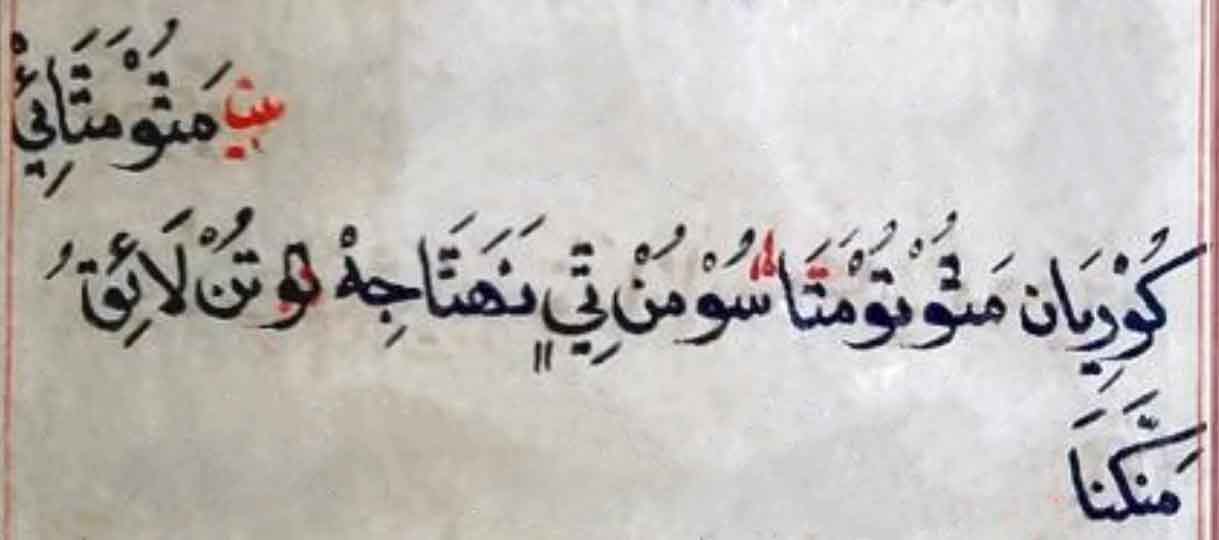 بيت مَتُوْ مَتَّائِيْ
كُوْرِيَان مَتُوْ تُوْ مَتَا سُوْ مُنْ تِيْ نَهَتَا جِهْ كو تُنْ لَائِقُ
مَنَّكَنَا